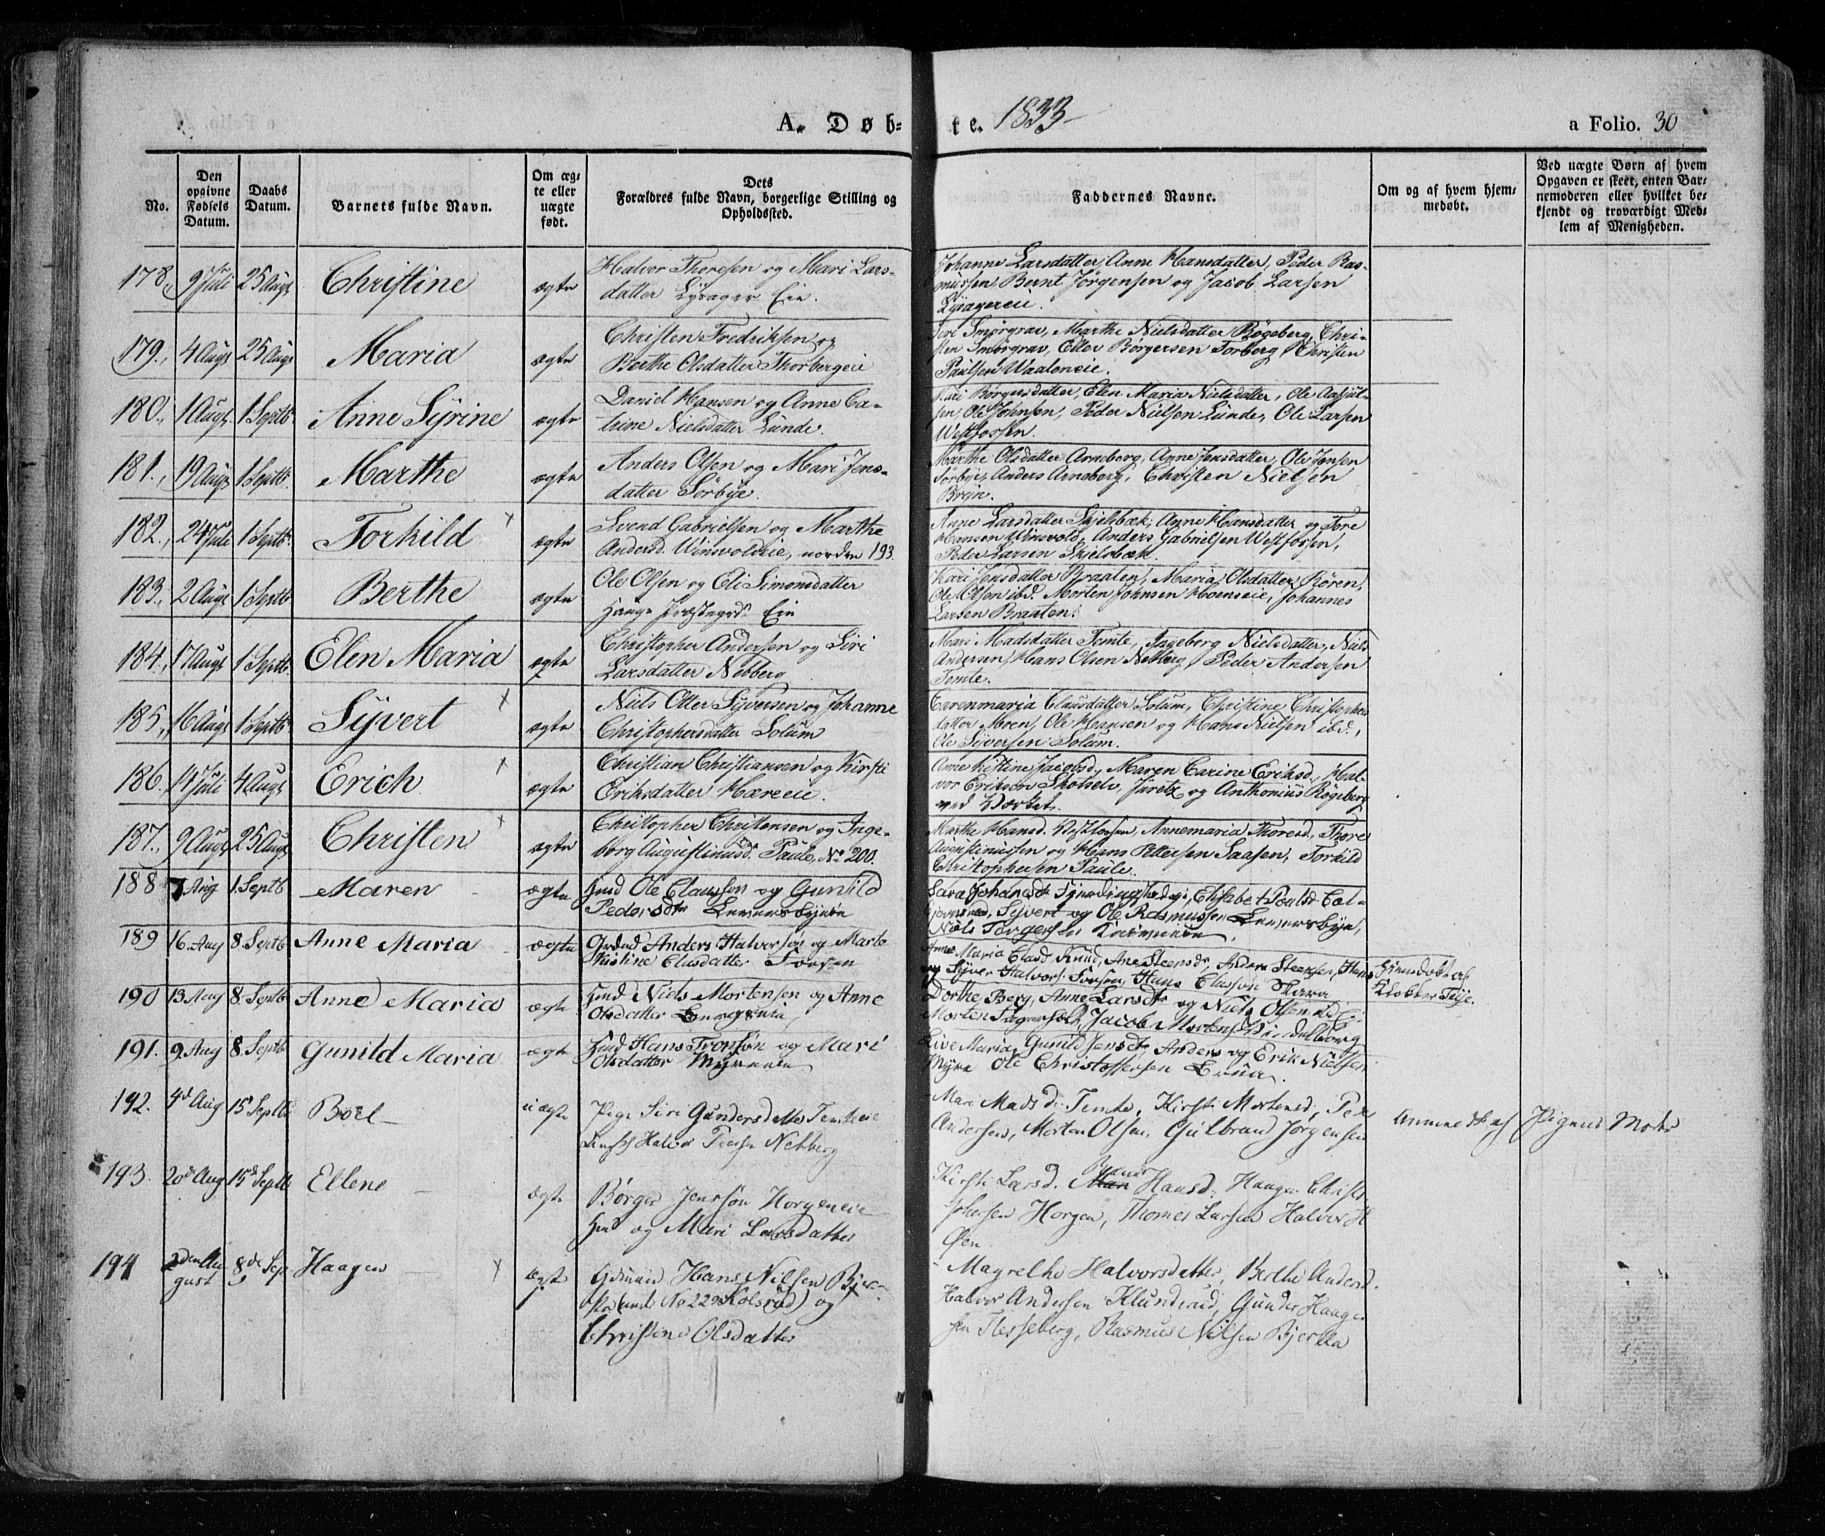 A. Døb- te. 1833
a Folio. 30
No.
Den opgivne Fødsels Datum.
Daabs Datum.
Barnets fulde Navn.
Om ægte eller uægte født.
Dets Forældres fulde Navn, borgerlige Stilling og Opholdssted.
Faddernes Navne.
Om og af hvem hjemmedøbt.
Ved uægte Børn af hvem Opgaven er skeet, enten Barnemoderen eller hvilket bekjendt og troværdigt Medlem af Menigheden.
178. 9 Juli 25 Augt Christine ægte Halvor Thoresen og Mari Lars-
datter Lysager Eie.
Johanne Larsdatter, Anne Hansdatter, Peder Ras-
mussen Bernt Jørgensen og Jacob Larsen
179. 4 Augt 25 Augt Maria ægte Christen Fredriksen og
Berthe Olsdatter Thorbergeie
Siri Smørgrav, Marthe Nielsdatter Bøgeberg, Chri-
sten Smørgrav, Eller Børgersen Torberg, Christen
Paulsen Waaleneie.
180. 1 Augt 1 Septb Anne Syrine ægte Daniel Hansen og Anne Ca-
trine Nielsdatter Lunde.
Kari Børgersdatter, Elen Maria Nielsdatter, Ole
Ole Johnsen, Peder Nielsen Lunde, Ole Larsen
Westfossen.
181. 19 Augt 1 Septb. Marthe ægte Anders Olsen og Mari Jens-
datter Sørbye.
Marthe Olsdatter Arneberg, Anne Jensdatter, Ole Jonsen
Sorbye, Anders Arneberg, Christen Nielsen
182. 24 Juli 1 Septb. Torkild x ægte Svend Gabrielsen og Marthe
Andersd. Winsvoldeie, norden 193.
Anne Larsdatter Skjelbæk, Anne Hansdatter og Tore
Hansen Winsvold, Anders Gabrielsen Westfossen,
Peder Larsen Skielsbæk.
183. 2 Augt 1 Septb Berthe ægte Ole Olsen og Eli Simonsdatter
Hougs Præstegrds. Eie
Kari Jensdatter Braaten, Maria Olsdatter Røren,
Ole Olsen ibd. Morten Johnsen Hoenseie, Johannes
Larsen Braaten.
184. 17 Augt 1 Septb. Elen Maria ægte Christopher Andersen og Siri
Larsdatter Nebberg
Mari Madsdatter Temte, Ingeborg Nielsdatter, Niels
Andersen, Hans Olsen Nebberg, Peder Andersen
Temte.
185. 16 Augt 1 Septb Syvert x ægte Niels Otter Syversen og Johanne
Christophersdatter Solum
Carenmaria Clausdatter Solum, Christine Christophers
datter Moren, Ole Hansen og Hans Nielsen ibd.,
Ole Syversen Solum.
186. 14 Juli 4 Augt Erich x ægte Christian Christiansen og Kirsti
Eriksdatter Hæreeie.
Anne Kistine Jacobsd, Maren Carine Eriksd, Hal-
vor Eriksen Skotselv, Juretz og Anthonius Røgeberg
ved Værket.
187. 9 Augt 25 Augt Christen x ægte Christopher Christensen og Inge-
borg Augustinusd. Paule, No 200.
Marthe Hansd. Vestfossen, Annemaria Thoresd, Thore
Augustinussen og Hans Pettersen Saasen, Torkild
Christophersen Paule.
188 7 Aug 1. Septb Maren - ægte Hmd Ole Claussøn og Gunild
Pedersdtr
Sara Johansdtr Elisabet
Syvert og Ole Rasmussen
189 16. Aug 8. Septb Anne Maria ægte Anders Halvorsøn og Marte
Kistine Elisdatter Fossen
Anne Maria Anne Steensdr, Anders Steensen, Hans
og Syver Halvors. Fossen, Hans Elassøn Skara
Hjemdøbt af
190 13 Aug 8 Septb Anne Maria ægte Hmd Niels Mortensen og Anne
Olsdatter
Dorthe Berg, Anne Larsdr og Niels Olsen
Morten Jacob Mortens.
191. 9 Aug 8 Septb Gunild Maria ægte Hmd Hans Tronsøn og Mari
Olsdatter Myreneie
Live Maria, Gunild Jensdr, Anders og Erik Nielsen
Myra Ole Christoffersen
192. 4d Aug 15 Septb Boel - uægte Pige Siri Gundersdatter Temteie
Halvor Nebberg
Mari Madsd: Temte, Kirsti Mortensd, Peder
Andersen, Morten Olsen, Gulbrand Jørgensen
Anmeldt af Pigens Moder
193. 20d Aug 15d Septb Ellene - ægte Børger Jenssøn Horgeneie
Hmd og Mari Larsdatter
Kirsti Larsd. Hansd, Haagen Christo
phersen Horgen, Thomas Larsen Halvor H
194 2den Au
gust 8de Sep Haagen - x ægte Gdmand Hans Nilsen Bjer-
(under No 229 Kolsrud) og
Christine Olsdatter
Magrethe Halvorsdatter, Berthe Andersd.
Halvor Andersen Klunderud, Gunder Haagen
sen Flesseberg, Rasmus Nilsen Bjerkla